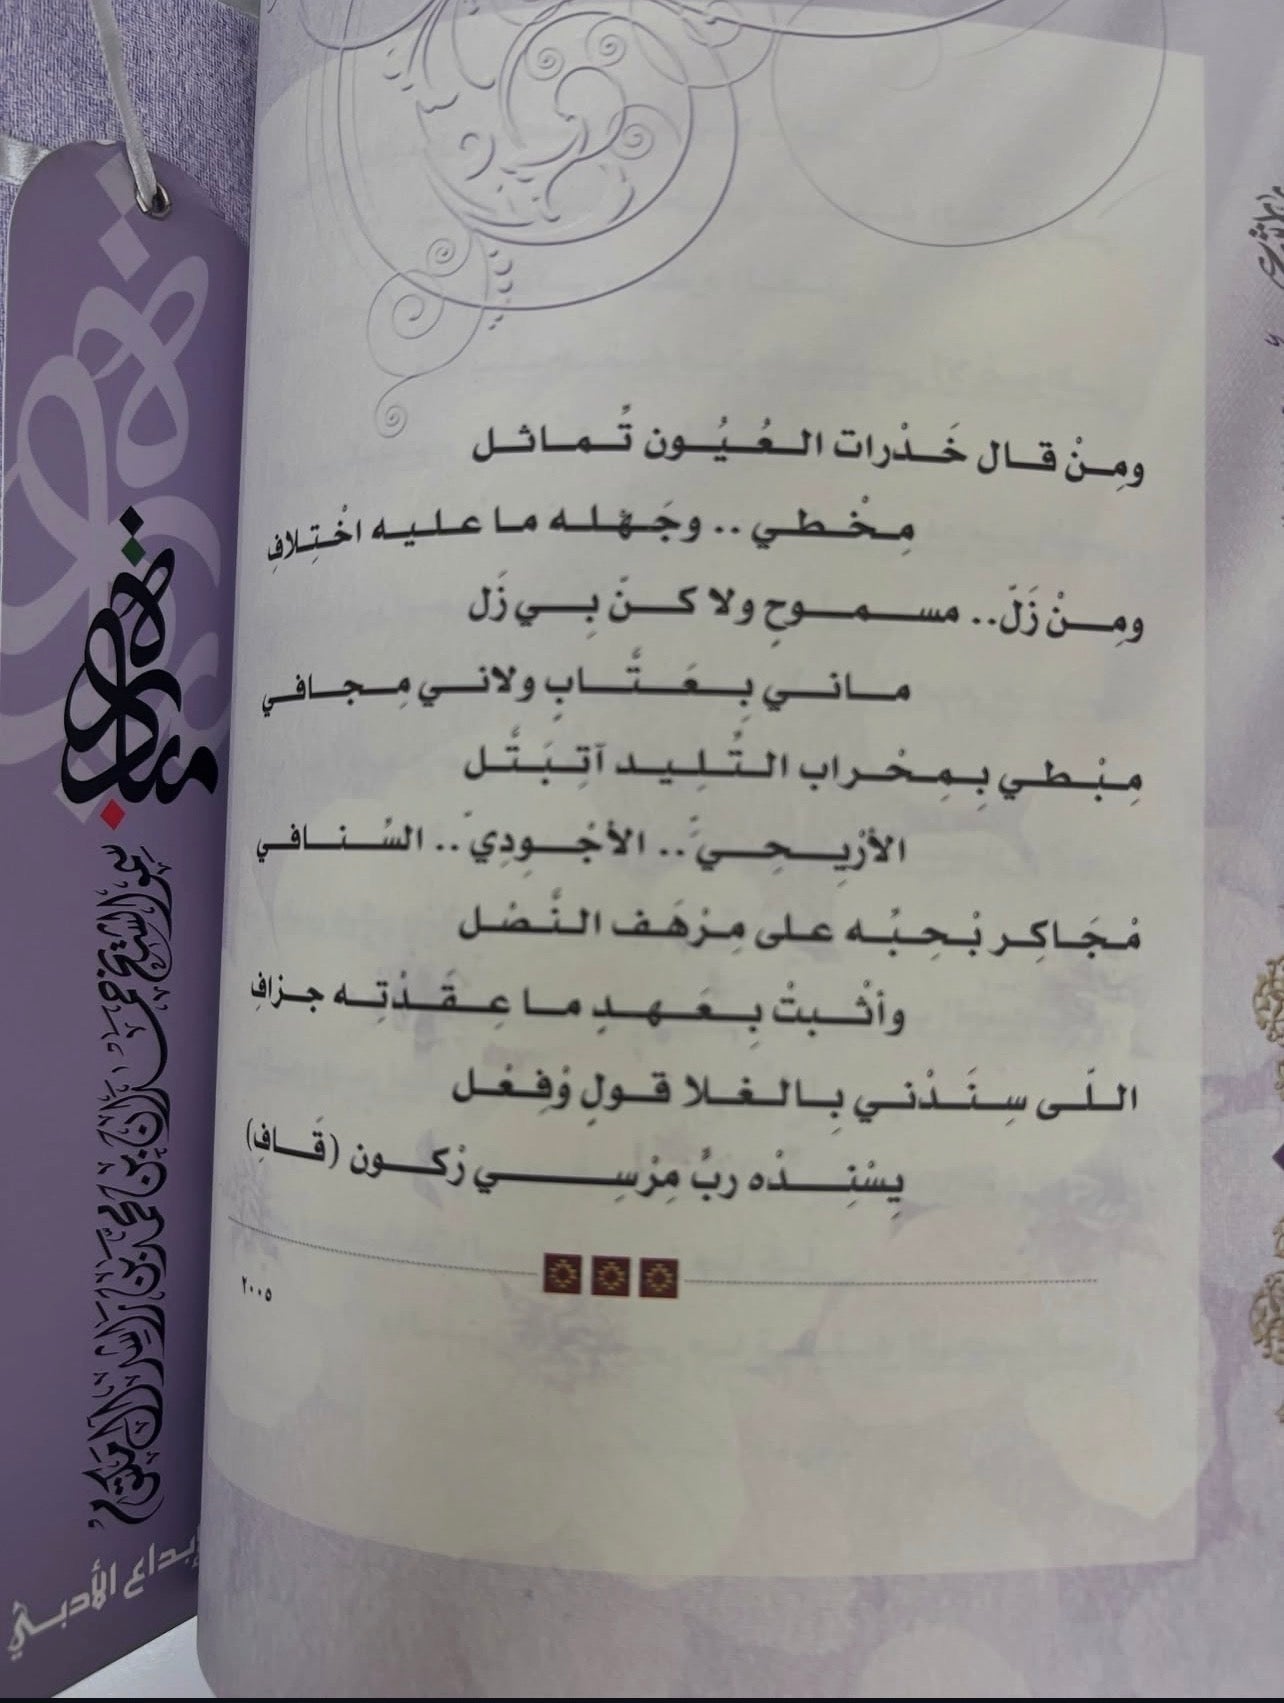 ومِنْ قال خَدْرات العُيُون تُماثل
مِخْطي .. وجَهْله ما عليه اخْتِلافِ
ومِنْ زَلّ.. مسموحِ ولا كنّ بِي زَل
ماني بِعَتَّابٍ ولاني مِجافي
مِبْطي بِمِحْراب التُلِيد آتِبَتَّل
الأرْيِحِيّ.. الأجْوِدِيّ.. السُنافي
مْجَاكِر بْحِبِّه على مِرْهَف النَّصْل
وأثْبتْ بِعَهدِ ما عِقَدْتِه جزافِ
اللّى سِنَدْني بِالغلا قولِ وْفِعْل
يِسْنِدْه ربٍّ مِرْسِي رْكون (قَافِ)
٢٠٠٥
إبداع الأدبي